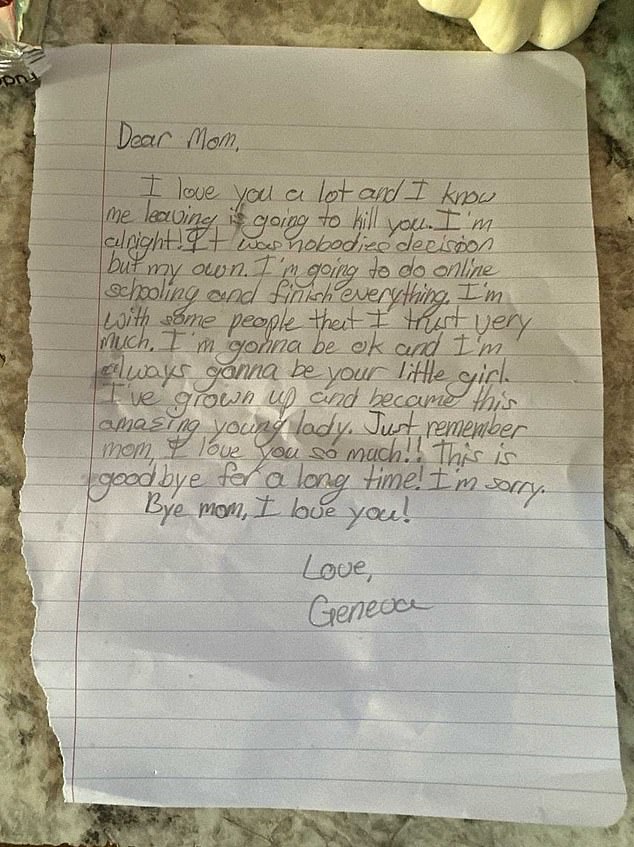 Dear Mom,
I love you a lot and I know
me leaving is going to kill you. I'm
alright! It was nobodies decision
but my own. I'm going to do online
schooling and finish everything. I'm
with some people that I trust very
much. I'm gonna be ok and I'm
always gonna be your little girl.
I've grown up and became this
amasing young lady. Just remember
mom, I love you so much!! This is
goodbye for a long time! I'm sorry.
Bye mom, I love you!
Love,
Geneva